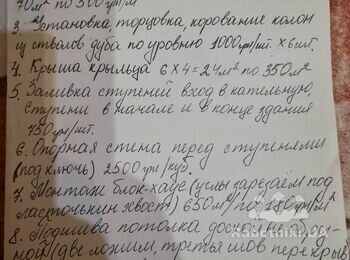 70м² по 300 грн/м
3. Установка, торцовка, корование колон
и стволов дуба по уровню 1000грн/шт. х 6шт.
4. Крыша крыльца 6 х 4 = 24м² по 350м²
5. Заливка ступеней вход в кательную,
ступени в начале и в конце здания
750 грн/шт.
6. Опорная стена перед ступенями
(под ключь) 2500 грн/куб.
7. Монтаж блок-хаус (углы зарезаем под
ласточькин хвост) 650м² по грн/м²
8. Подшива потолка
(две ложим, третья шов перекрыв